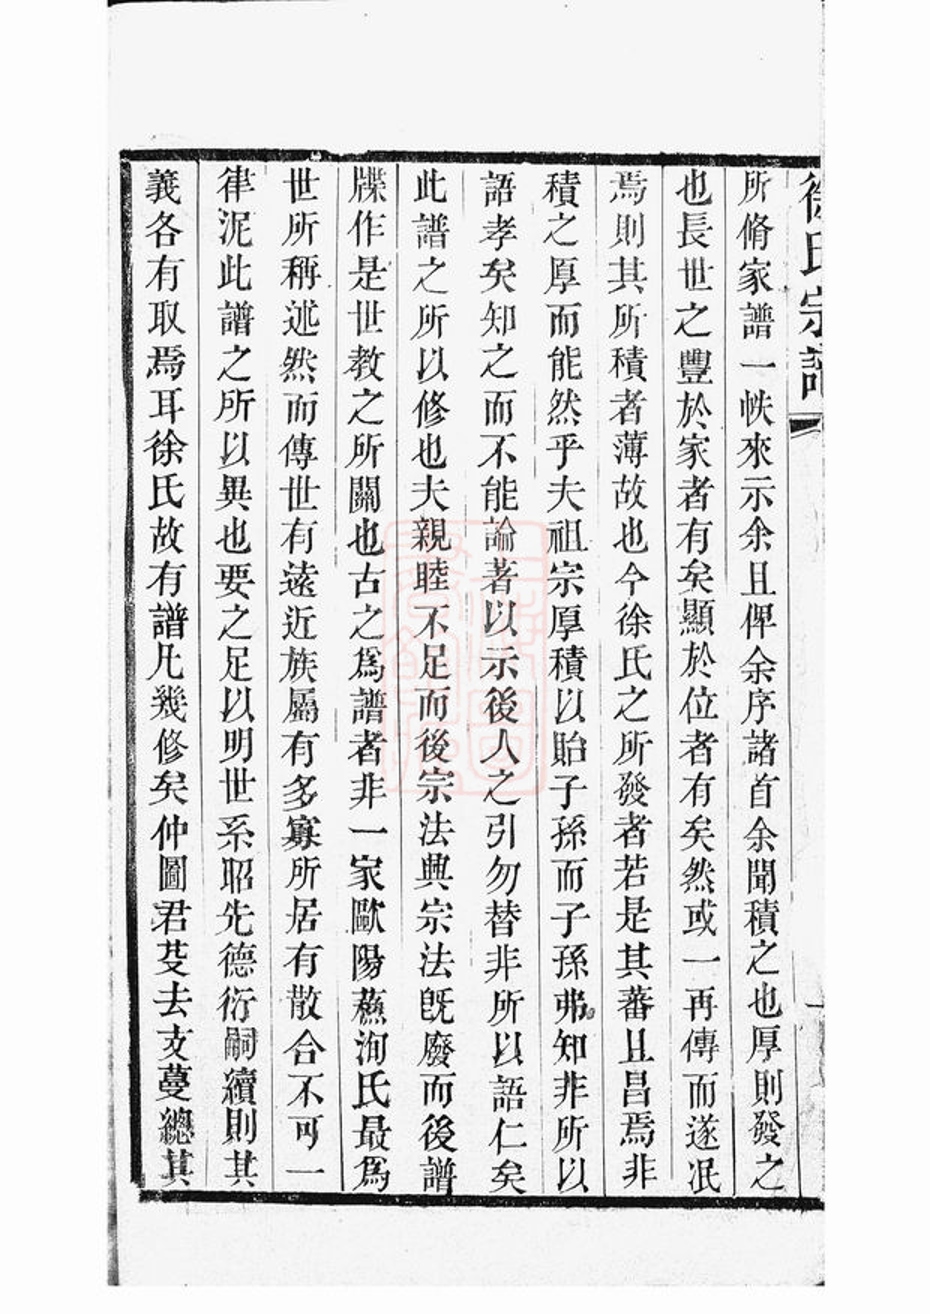 徐氏宗譜
所脩家譜一帙來示余且俾余序諸首余聞積之也厚則發之
也長世之豐於家者有矣顯於位者有矣然或一再傳而遂泯
焉則其所積者薄故也今徐氏之所發者若是其蕃且昌焉非
積之厚而能然乎夫祖宗厚積以貽子孫而子孫弗知非所以
語孝矣知之而不能論著以示後人之引勿替非所以語仁矣
此譜之所以修也夫親睦不足而後宗法興宗法旣廢而後譜
牒作是世教之所關也古之爲譜者非一家歐陽蘇洵氏最爲
世所稱述然而傳世有遠近族屬有多寡所居有散合不可一
律泥此譜之所以異也要之足以明世系昭先德衍嗣續則其
義各有取焉耳徐氏故有譜凡幾修矣仲圖君芟去支蔓總其